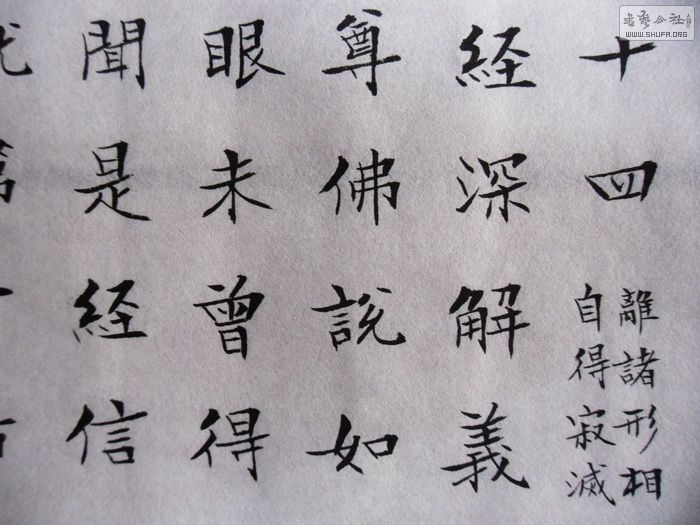 十四
離諸形相
自得寂滅
经深解義
尊佛說如
眼未曾得
聞是经信
书艺公社
WWW.SHUFA.ORG